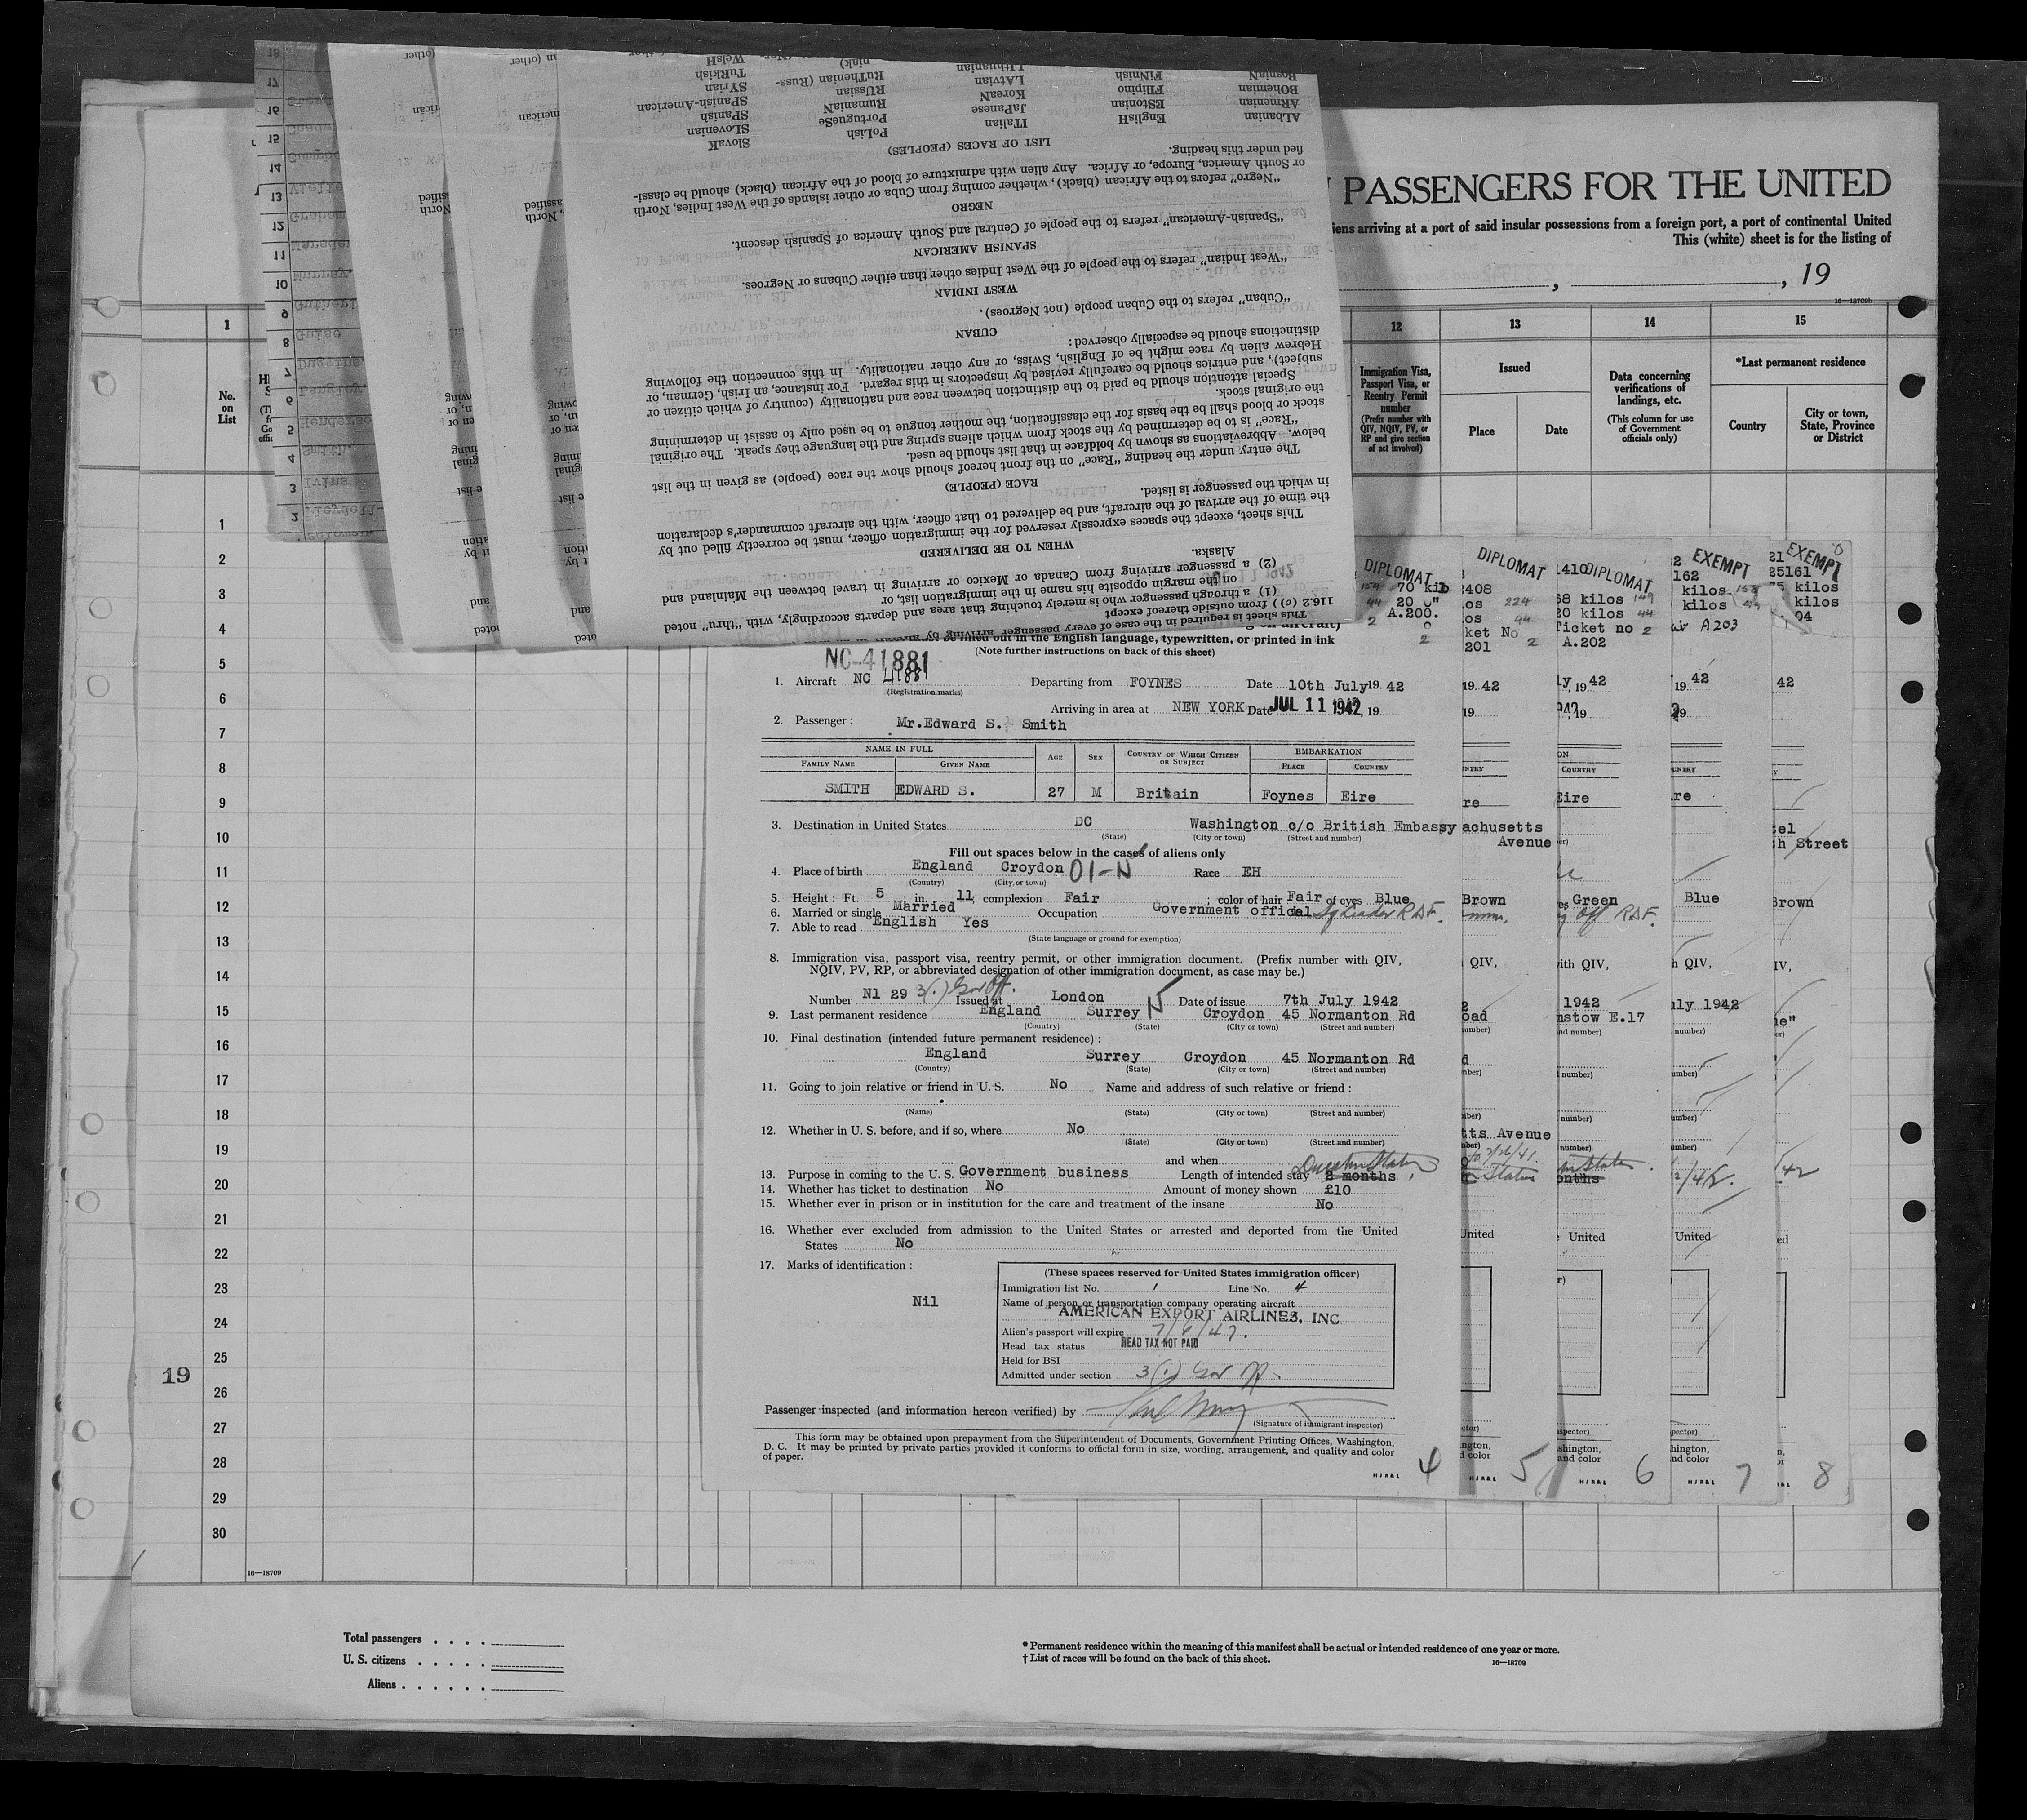 PASSENGERS FOR THE UNITED
iens arriving at a port of said insular possessions from a foreign port, a port of continental United
This (white) sheet is for the listing of
, 19
16—18709b
1
12
13
14
15
No. on List
Immigration Visa, Passport Visa, or Reentry Permit number
(Prefix number with QIV, NQIV, PV, or RP and give section of act involved)
Issued
Place
Date
Data concerning verifications of landings, etc.
(This column for use of Government officials only)
*Last permanent residence
Country
City or town, State, Province or District
This sheet is required in the case of every passenger arriving by
116.2 (c)) from outside thereof except
(1) a through passenger who is merely touching that area and departs accordingly, with "thru" noted
on the margin opposite his name in the immigration list, or
(2) a passenger arriving from Canada or Mexico or arriving in travel between the Mainland and
Alaska.
WHEN TO BE DELIVERED
This sheet, except the spaces expressly reserved for the immigration officer, must be correctly filled out by
the time of the arrival of the aircraft, and be delivered to that officer, with the aircraft commander's declaration
in which the passenger is listed.
RACE (PEOPLE)
The entry under the heading "Race" on the front hereof should show the race (people) as given in the list
below. Abbreviations as shown by boldface in that list should be used.
"Race" is to be determined by the stock from which aliens spring and the language they speak. The original
stock or blood shall be the basis for the classification, the mother tongue to be used only to assist in determining
the original stock.
Special attention should be paid to the distinction between race and nationality (country of which citizen or
subject), and entries should be carefully revised by inspectors in this regard. For instance, an Irish, German, or
Hebrew alien by race might be of English, Swiss, or any other nationality. In this connection the following
distinctions should be especially observed:
CUBAN
"Cuban" refers to the Cuban people (not Negroes).
WEST INDIAN
"West Indian" refers to the people of the West Indies other than either Cubans or Negroes.
SPANISH AMERICAN
"Spanish-American" refers to the people of Central and South America of Spanish descent.
NEGRO
"Negro" refers to the African (black), whether coming from Cuba or other islands of the West Indies, North
or South America, Europe, or Africa. Any alien with admixture of blood of the African (black) should be classi-
fied under this heading.
LIST OF RACES (PEOPLES)
ALbanian EnglisH ITalian PoLish SlovaK
ARmenian EStonian JaPanese PortugueSe SLovenian
BOhemian FIlipino KoreaN RumaniaN SPanish
BosniaN FiNnisH LAtvian RUssian SPanish-American
LIthuanian RuThenian (Russ- SYrian
niak) TuRkisH
WelsH
DIPLOMAT
70 kilo
20 "
A.200.
DIPLOMAT
224
44
201
DIPLOMAT
68 kilos
20 kilos 44
Ticket no 2
A.202
EXEMPT
162
kilos
kilos
A203
EXEMPT
25161
kilos
kilos
out in the English language, typewritten, or printed in ink
(Note further instructions on back of this sheet)
NC-41881
1. Aircraft NC 41881 Departing from FOYNES Date 10th July 19 42
(Registration marks)
Arriving in area at NEW YORK Date JUL 11 1942, 19
2. Passenger: Mr.Edward S. Smith
NAME IN FULL AGE SEX COUNTRY OF WHICH CITIZEN OR SUBJECT EMBARKATION
FAMILY NAME GIVEN NAME PLACE COUNTRY
SMITH EDWARD S. 27 M Britain Foynes Eire
3. Destination in United States DC Washington c/o British Embassy
(State) (City or town) (Street and number)
achusetts
Avenue
Fill out spaces below in the cases of aliens only
4. Place of birth England Croydon 01-N Race EH
(Country) (City or town)
5. Height: Ft. 5, in. 11; complexion Fair; color of hair Fair of eyes Blue
6. Married or single Married Occupation Government official Sq Leader RAF.
7. Able to read English Yes
(State language or ground for exemption)
8. Immigration visa, passport visa, reentry permit, or other immigration document. (Prefix number with QIV,
NQIV, PV, RP, or abbreviated designation of other immigration document, as case may be.)
Number N1 29 3(1) Gov Off. Issued at London Date of issue 7th July 1942
9. Last permanent residence England Surrey Croydon 45 Normanton Rd
(Country) (State) (City or town) (Street and number)
10. Final destination (intended future permanent residence):
England Surrey Croydon 45 Normanton Rd
(Country) (State) (City or town) (Street and number)
11. Going to join relative or friend in U. S. No Name and address of such relative or friend:
(Name) (State) (City or town) (Street and number)
12. Whether in U. S. before, and if so, where No
(State) (City or town) (Street and number)
and when
13. Purpose in coming to the U. S. Government business Length of intended stay 2 months
14. Whether has ticket to destination No Amount of money shown £10
15. Whether ever in prison or in institution for the care and treatment of the insane No
16. Whether ever excluded from admission to the United States or arrested and deported from the United
States No
17. Marks of identification:
Nil
(These spaces reserved for United States immigration officer)
Immigration list No. 1 Line No. 4
Name of person or transportation company operating aircraft
AMERICAN EXPORT AIRLINES, INC
Alien's passport will expire 7/6/47.
Head tax status HEAD TAX NOT PAID
Held for BSI
Admitted under section 3(1) Gov Off.
Passenger inspected (and information hereon verified) by
(Signature of immigrant inspector)
This form may be obtained upon prepayment from the Superintendent of Documents, Government Printing Offices, Washington,
D. C. It may be printed by private parties provided it conforms to official form in size, wording, arrangement, and quality and color
of paper.
4 5 6 7 8
Brown
Green
Blue
Brown
1942
nstow E.17
tts Avenue
h Street
United
1
2
3
4
5
6
7
8
9
10
11
12
13
14
15
16
17
18
19
20
21
22
23
24
25
26
27
28
29
30
19
16—18709
Total passengers
U. S. citizens
Aliens
* Permanent residence within the meaning of this manifest shall be actual or intended residence of one year or more.
† List of races will be found on the back of this sheet.
16—18709